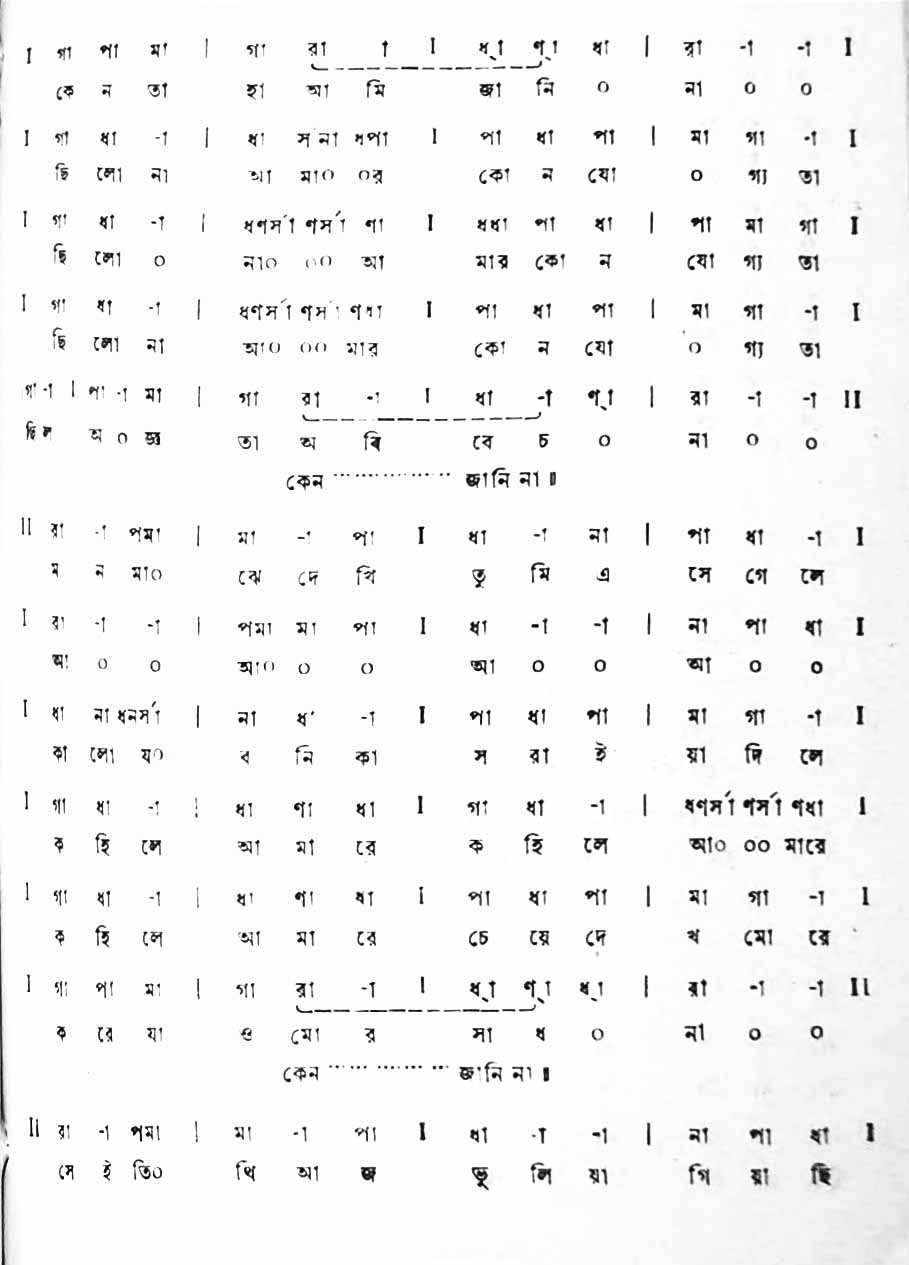 I গা পা মা | গা রা া I ধ্া ণ্া ধা | রা -া -া I
কে ন তা হা আ মি জা নি ০ না ০ ০
I গা ধা -া | ধা সনা ধপা I পা ধা পা | মা গা -া I
ছি লো না আ মা০ ০র কো ন যো ০ গ্য তা
I গা ধা -া | ধণর্সা ণর্সা ণা I ধধা পা ধা | পা মা গা I
ছি লো ০ না০ ০০ আ মার কো ন যো গ্য তা
I গা ধা -া | ধণর্সা ণর্সা ণধা I পা ধা পা | মা গা -া I
ছি লো না আ০ ০০ মার কো ন যো ০ গ্য তা
গা -া | পা -া মা | গা রা -া I ধা -া ণ্া | রা -া -া II
ছি ল অ ০ জ্ঞ তা অ বি বে চ ০ না ০ ০
কেন ................ জানি না॥
II রা -া পমা | মা -া পা I ধা -া না | পা ধা -া I
ম ন মা০ ঝে দে খি তু মি এ সে গে লে
I রা -া -া | পমা মা পা I ধা -া -া | না পা ধা I
আ ০ ০ আ০ ০ ০ আ ০ ০ আ ০ ০
I ধা না ধনর্সা | না ধা -া I পা ধা পা | মা গা -া I
কা লো য০ ব নি কা স রা ই য়া দি লে
I গা ধা -া | ধা ণা ধা I গা ধা -া | ধণর্সা ণর্সা ণধা I
ক হি লে আ মা রে ক হি লে আ০ ০০ মারে
I গা ধা -া | ধা ণা ধা I পা ধা পা | মা গা -া I
ক হি লে আ মা রে চে য়ে দে খ মো রে
I গা পা মা | গা রা -া I ধ্া ণ্া ধ্া | রা -া -া II
ক রে যা ও মো র সা ধ ০ না ০ ০
কেন ................ জানি না॥
II রা -া পমা | মা -া পা I ধা -া -া | না পা ধা I
সে ই তি০ থি আ জ ভু লি য়া গি য়া ছি